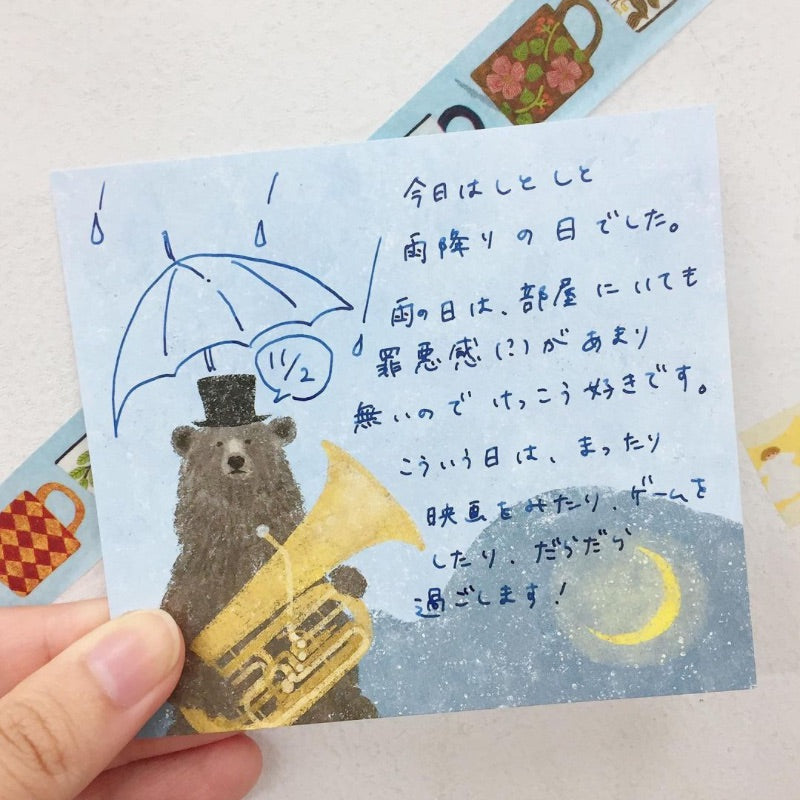 11/2
今日はしとしと
雨降りの日でした。
雨の日は、部屋にいても
罪悪感(?)があまり
無いのでけっこう好きです。
こういう日は、まったり
映画をみたり、ゲームを
したり、だらだら
過ごします!